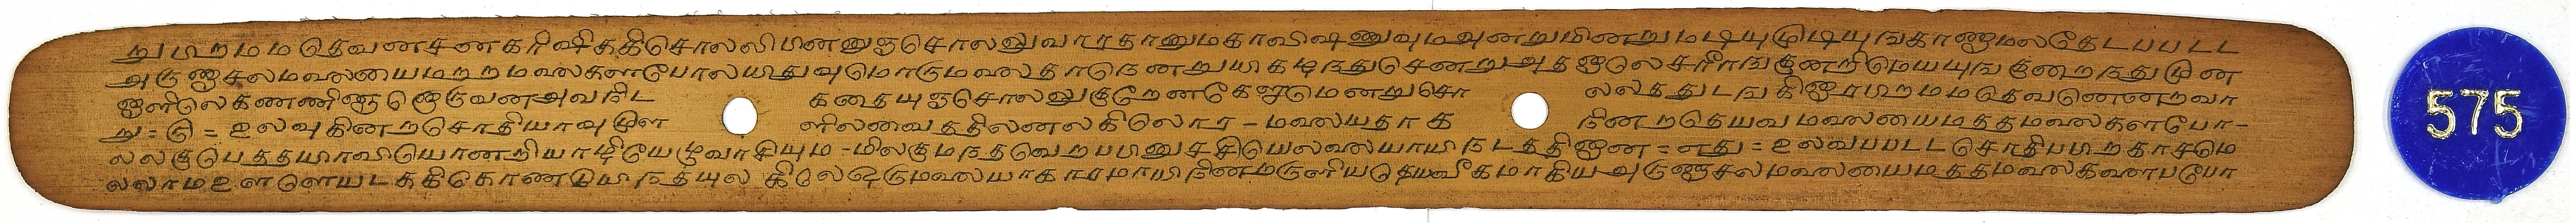 றுபபிறமம தெவனசனகரிஷிககிசொலலிபினனுஞசொலலுவாரதானுமகாவிஷணுவுமஅனறுமினறுமடியுமுடியுஙகாணுமலதேடபபடட
அருணுசலமலையைமறறமலைகளபோலயிதுவுமொருமலைதானெனறுயிகழநதுசெனறுஅதனுலெசரீரஙகுனறிமெயயுஙகுறைநதுமுன
னுளிலெகணணினு ளொருவனஅவனிட கதையுஞசொலலுகுறேனகேளுமெனறுசொ லலததுடஙகினுரபபிறமமதெவனெனறவா
று = டு = உலவுகினறசொதியாவுமுள ளிலவைததிலனலகிலொர - மலையதாக நினறதெயவமலையைமததமலைகளபோ-
லலகுபெததபாவியொனறியாழியேழுவாசியும - மிலகுமநதவெறபபினுசசியெலலையாயிநடததினுன = எது = உலவபபடடசொதிபபிறகாசமெ
லலாமஉளளெயடககிகொணடுயிநதயுல கிலெஒருமலையாகாரமாயிநினமருளியதெயவீகமாகியஅருணுசலமலையைமததமலைகளைபபோ
575